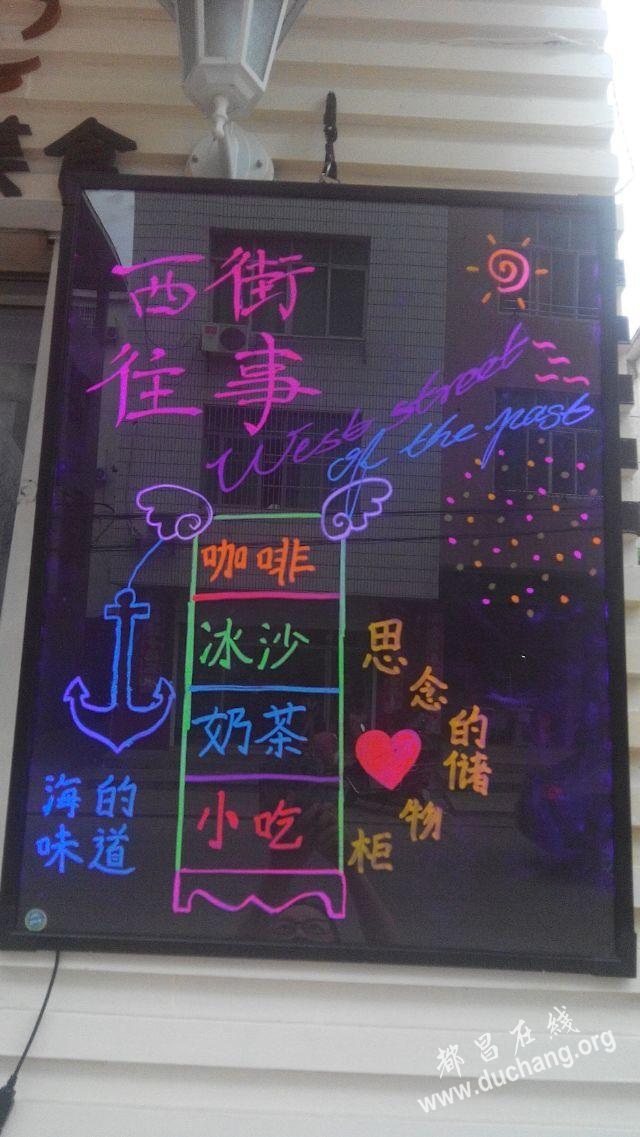 西街
往事
West street
of the past
咖啡
冰沙
奶茶
小吃
思念的储物柜
海的
味道
都昌在线
www.duchang.org